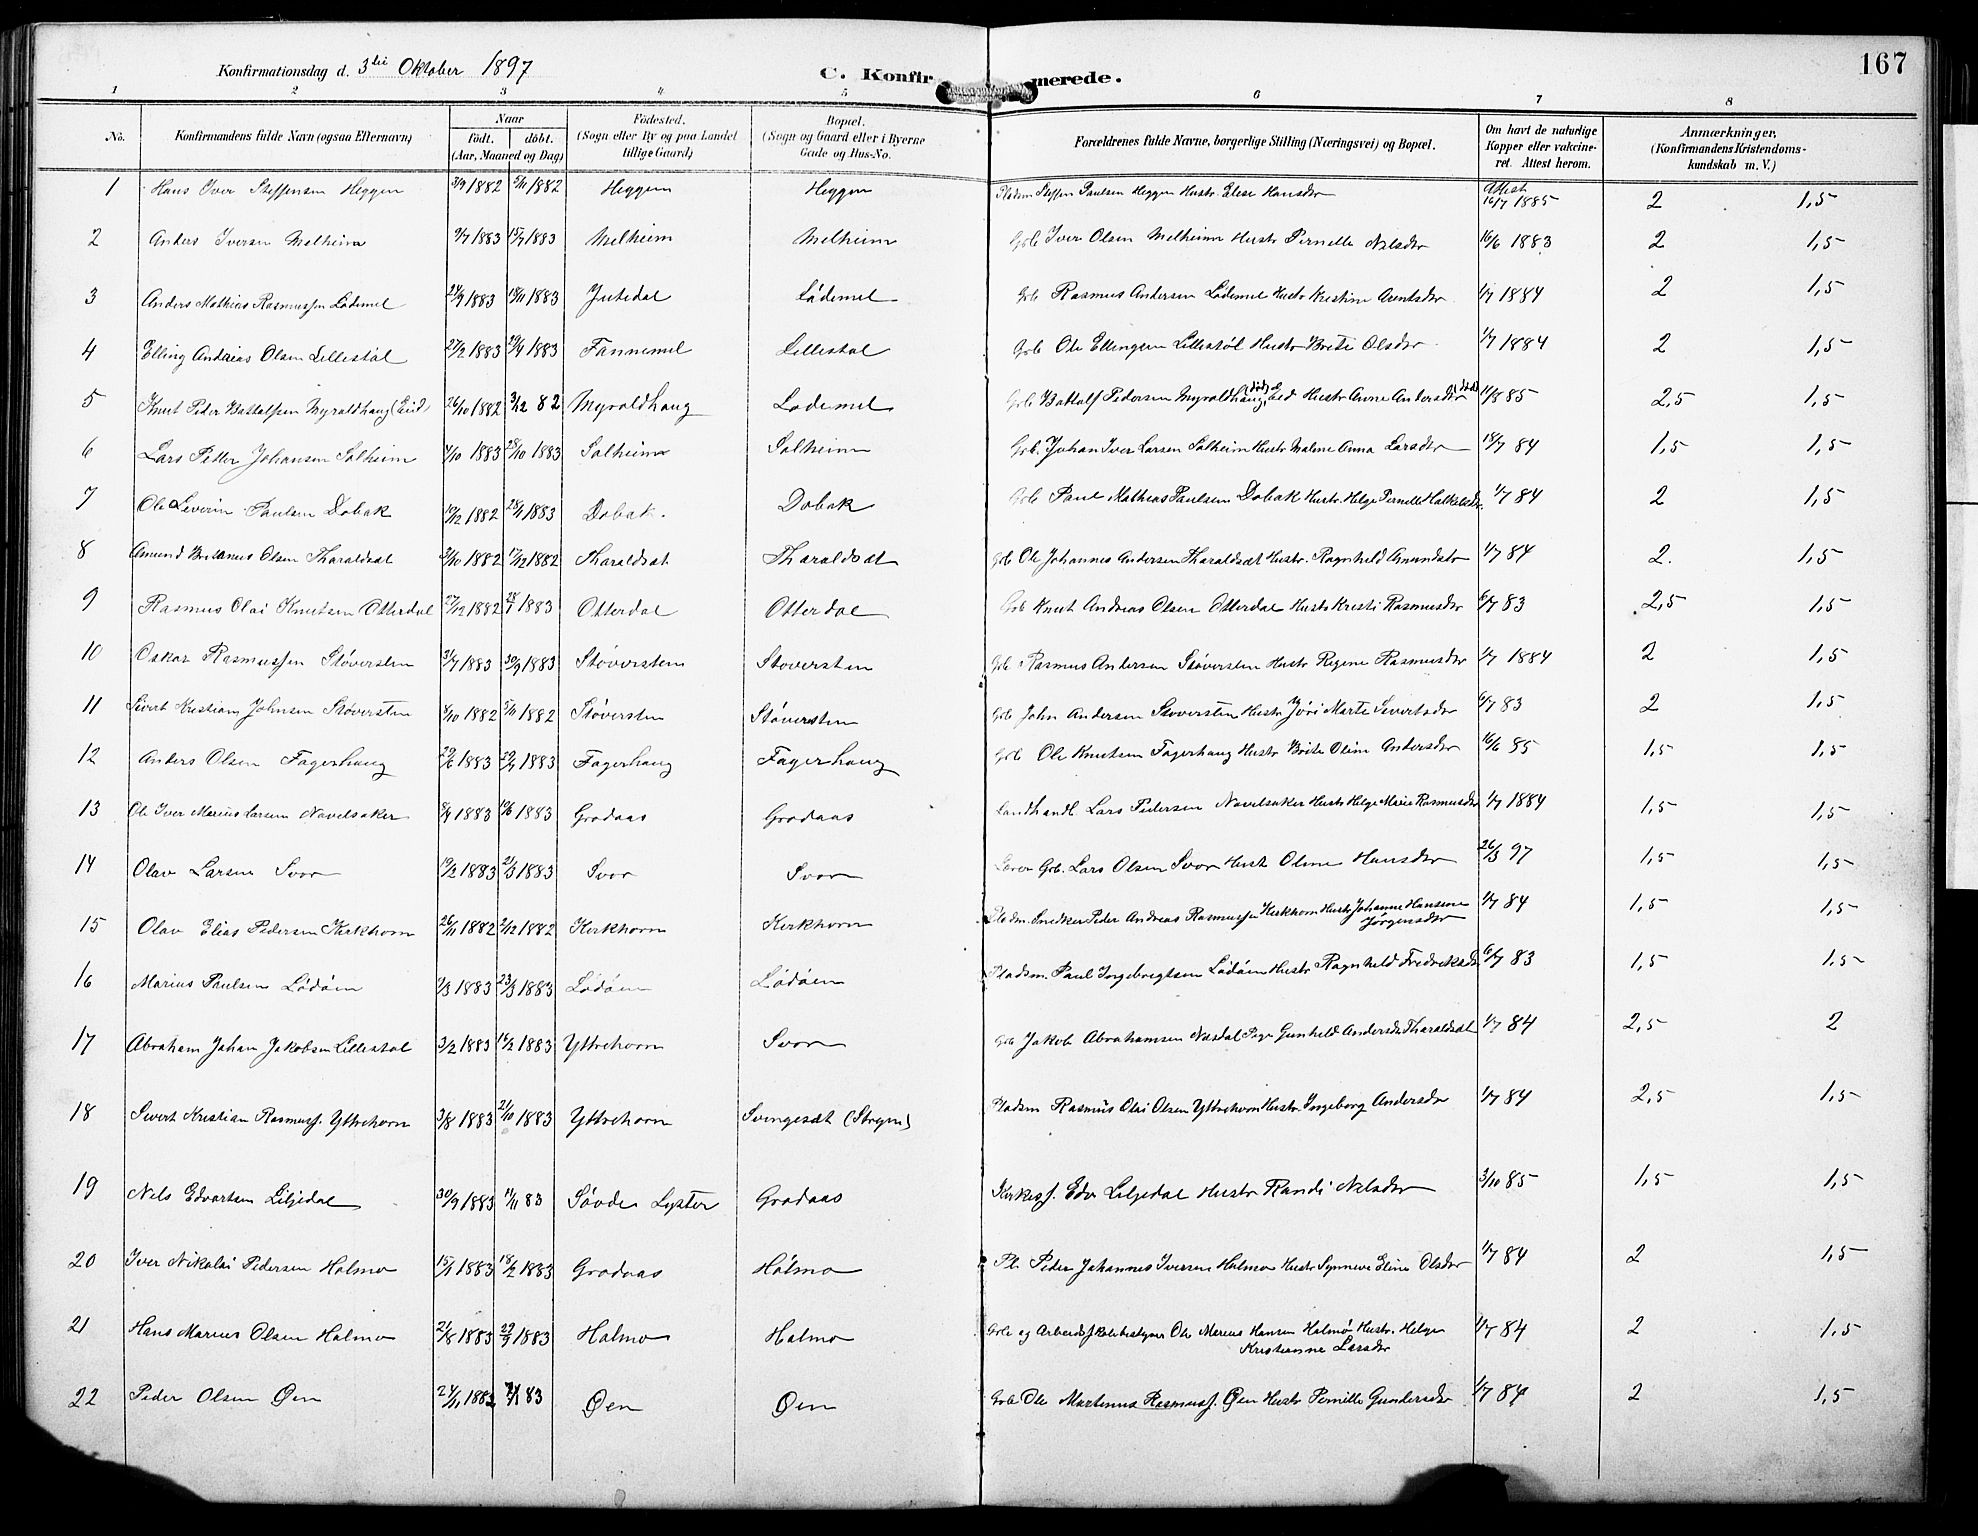 167
Konfirmationsdag d. 3die Oktober 1897
C. Konfirmerede.
1 2 3 4 5 6 7 8
No. Konfirmandens fulde Navn (ogsaa Efternavn) Naar født. døbt. (Aar, Maaned og Dag) Fødested. (Sogn eller By og paa Landet tillige Gaard) Bopæl. (Sogn og Gaard eller i Byerne Gade og Hus-No. Forældrenes fulde Navne, borgerlige Stilling (Næringsvei) og Bopæl. Om havt de naturlige Kopper eller vaccineret. Attest herom. Anmærkninger. (Konfirmandens Kristendomskundskab m. V.)
1 Hans Iver Steffensen Heggen 3/9 1882 5/11 1882 Heggen Heggen Pladsm Steffen Paulsen Heggen Hustr Elise Hansdr Attest 16/7 1885 2 1,5
2 Anders Iversen Melheim 9/7 1883 15/7 1883 Melheim Melheim Grb Iver Olsen Melheim Hustr Pernelle Nilsdr 16/6 1883 2 1,5
3 Anders Mathias Rasmussen Lødemel 24/9 1883 18/11 1883 Jutedal Lødemel Grb Rasmus Andersen Lødemel Hustr Kristine Arentsdr 1/7 1884 2 1,5
4 Elling Andreas Olsen Lillestøl 27/2 1883 29/4 1883 Tannemel Lillestøl Grb Ole Ellingsen Lillestøl Hustr Brite Olsdr 1/7 1884 2 1,5
5 Knut Peder Bottolfsen Myroldhaug (Eid) 26/10 1882 3/12 82 Myroldhaug Lødemel Grb Bottolf Pedersen Myroldhaug Hustr Anne Andersdr (død) 11/8 85 2,5 1,5
6 Lars Petter Johansen Solheim 4/10 1883 28/10 1883 Solheim Solheim Grb. Johan Iver Larsen Solheim Hustr Malene Anna Larsdr 18/7 84 1,5 1,5
7 Ole Severin Paulsen Dobak 19/12 1882 28/1 1883 Dobak. Dobak Grb Paul Mathias Paulsen Dobak Hustr. Helge Pernille Halkelsdr. 1/7 84 2 1,5
8 Amund Britanus Olsen Tharaldsæt 31/10 1882 17/12 1882 Tharaldsæt Tharaldsæt Grb Ole Johannes Andersen Tharaldsæt Hustr. Ragnhild Amundsdr 1/7 84 2. 1,5
9 Rasmus Olai Knutsen Otterdal 27/12 1882 28/1 1883 Otterdal Otterdal Grb Knut Andreas Olsen Otterdal Hustr Kristi Rasmusdr 6/7 83 2,5 1,5
10 Oskar Rasmussen Støversten 31/7 1883 30/9 1883 Støversten Støversten Grb Rasmus Andersen Støversten Hustr Regine Rasmusdr 1/7 1884 2 1,5
11 Sivert Kristian Johnsen Støversten 8/10 1882 5/11 1882 Støversten Støversten Grb John Andersen Støversten Hustr Jøri Marte Sivertsdr 6/7 83 2 1,5
12 Anders Olsen Fagerhaug 29/6 1883 29/7 1883 Fagerhaug Fagerhaug Grb Ole Knutsen Fagerhaug Hustr Brite Oline Andersdr 16/6 85 1,5 1,5
13 Ole Iver Marius Larsen Navelsaker 8/4 1883 10/6 1883 Grodaas Grodaas Landhandl. Lars Pedersen Navelsaker Hustr Helge Marie Rasmusdr 1/7 1884 1,5 1,5
14 Olav Larsen Svor 19/2 1883 21/3 1883 Svor Svor Grb. Lars Olsen Svor Hust Oline Hansdr 26/3 97 1,5 1,5
15 Olav Elias Pedersen Kirkhorn 26/11 1882 3/12 1882 Kirkhorn Kirkhorn Pladsm. Snedker Peder Andreas Rasmussen Kirkhorn Hustr Johanne Hansine Jørgensdr 1/7 84 1,5 1,5
16 Marius Paulsen Lødøen 1/3 1883 23/3 1883 Lødøen Lødøen Pladsm. Paul Ingebregtsen Lødøen Hustr Ragnhild Fredriksdr. 6/7 83 1,5 1,5
17 Abraham Johan Jakobsen Lillestøl 3/2 1883 16/2 1883 Yttrehorn Svor Grb Jakob Abrahamsen Nosdal Pige Gunhild Andersdr Tharaldsæt 1/7 84 2,5 2
18 Sivert Kristian Rasmuss. Yttrehorn 3/8 1883 21/10 1883 Yttrehorn Svingesæt (Stryn) Pladsm Rasmus Olai Olsen Yttrehorn Hustr Ingeborg Andersdr 1/7 84 2,5 1,5
19 Nils Edvartsen Liljedal 30/9 1883 11/11 83 Søvde Lyster Grodaas Kirkesg. Edv Liljedal Hustr Randi Nilsdr 3/10 85 1,5 1,5
20 Iver Nikolai Pedersen Holmø 15/1 1883 18/2 1883 Grodaas Holmø Pl. Peder Johannes Iversen Holmø Hustr Synneve Eline Olsdr 1/7 84 2 1,5
21 Hans Marius Olsen Holmø 21/8 1883 29/9 1883 Holmø Holmø Grb og Arbeidsskolebestyrer Ole Marius Hansen Holmø Hustr. Helge Kristianne Larsdr 1/7 84 2 1,5
22 Peder Olsen Øen 24/11 1882 83 Øen Øen Grb Ole Martinus Rasmuss. Øen Hustr Pernille Gundersdr 1/7 84 2 1,5